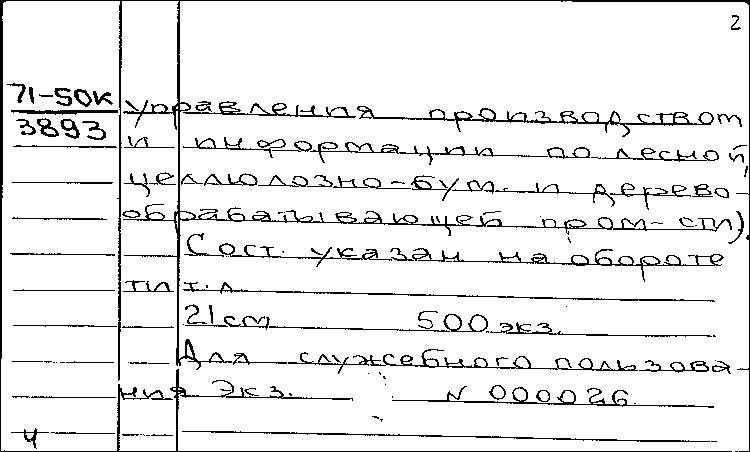 2
71-50к
3893
управления производством
и информации по лесной,
целлюлозно-бум. и дерево-
обрабатывающей пром-сти).
Сост. указан на обороте
тит. л.
21 см 500 экз.
Для служебного пользова-
ния Экз. N 000026
4